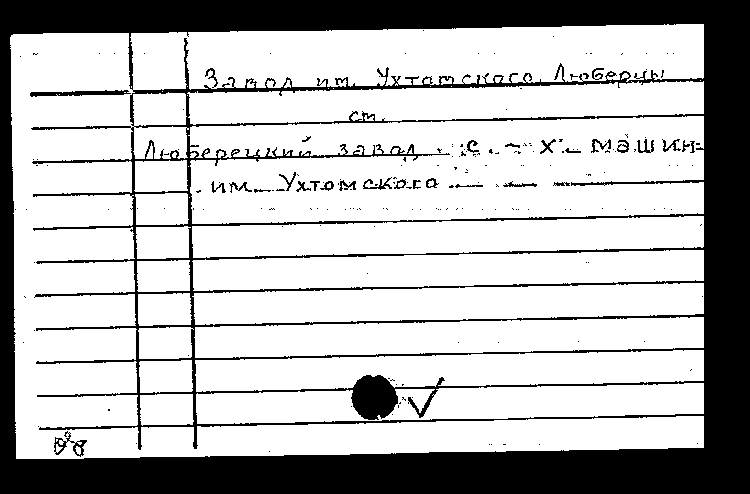 Завод им. Ухтомского. Люберцы
ст.
Люберецкий завод с.-х. машин
им. Ухтомского